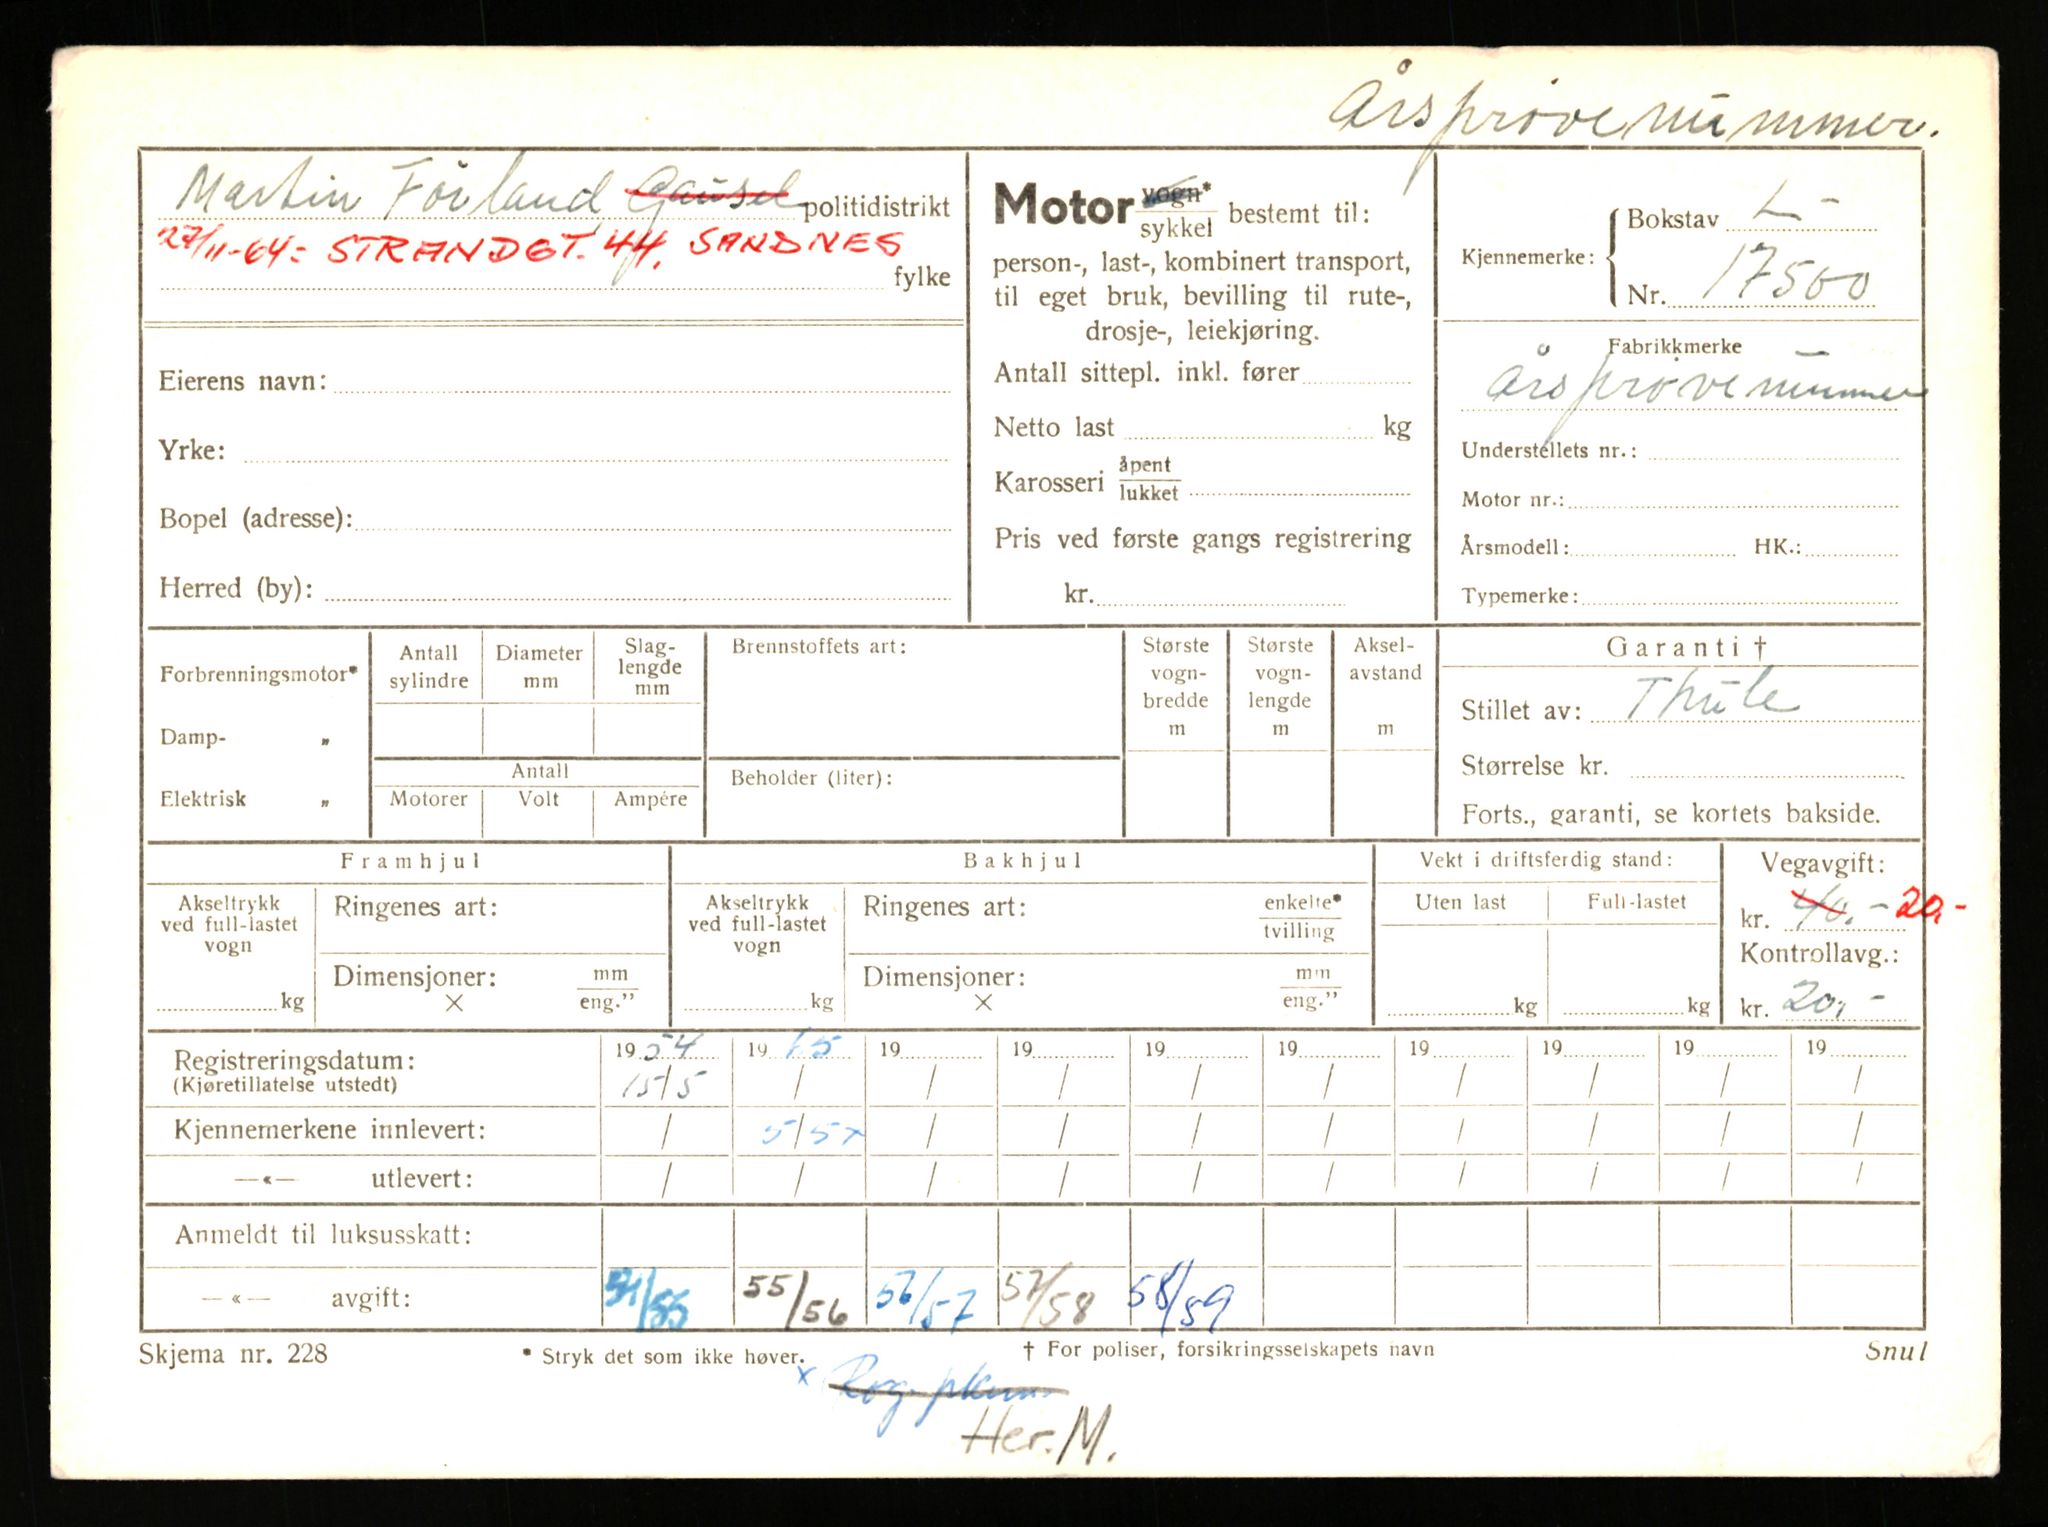 Årsprøvenummer.
Martin Förland Gausel politidistrikt
27/11-64: STRANDGT. 44, SANDNES
fylke
Eierens navn:
Yrke:
Bopel (adresse):
Herred (by):
Motor vogn* / sykkel bestemt til:
person-, last-, kombinert transport,
til eget bruk, bevilling til rute-,
drosje-, leiekjøring.
Antall sittepl. inkl. fører
Netto last kg
Karosseri åpent / lukket
Pris ved første gangs registrering
kr.
Kjennemerke: Bokstav L-
Nr. 17500
Fabrikkmerke
Årsprøvenummer
Understellets nr.:
Motor nr.:
Årsmodell: HK.:
Typemerke:
Forbrenningsmotor*
Damp- „
Elektrisk „
Antall sylindre
Diameter mm
Slag-lengde mm
Antall
Motorer Volt Ampére
Brennstoffets art:
Beholder (liter):
Største vogn-bredde m
Største vogn-lengde m
Aksel-avstand m
Garanti †
Stillet av: Thule
Størrelse kr.
Forts., garanti, se kortets bakside.
Framhjul
Akseltrykk ved full-lastet vogn
kg
Ringenes art:
Dimensjoner: mm / eng."
×
Bakhjul
Akseltrykk ved full-lastet vogn
kg
Ringenes art: enkelte* / tvilling
Dimensjoner: mm / eng."
×
Vekt i driftsferdig stand:
Uten last Full-lastet
kg kg
Vegavgift:
kr. 40.- 20,-
Kontrollavg.:
kr. 20,-
Registreringsdatum: 1954 1965 19 19 19 19 19 19 19 19
(Kjøretillatelse utstedt) 15/5 / / / / / / / / /
Kjennemerkene innlevert: / 5/5x / / / / / / / /
—«— utlevert: / / / / / / / / / /
Anmeldt til luksusskatt:
—«— avgift: 54/55 55/56 56/57 57/58 58/59
Skjema nr. 228 * Stryk det som ikke høver. † For poliser, forsikringsselskapets navn Snul
x Rog.
Her. M.